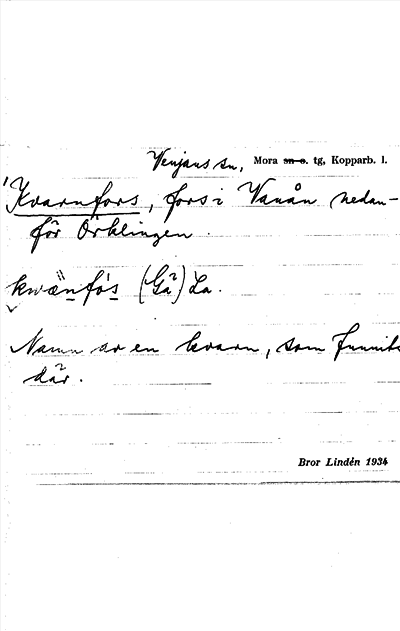 Venjans sn, Mora sn o. tg, Kopparb. l.
Kvarnfors, fors i Vanån nedan-
för Örklingen.
kwænfós (Gå) La.
Namn av en kvarn, som funnits
där.
Bror Lindén 1934